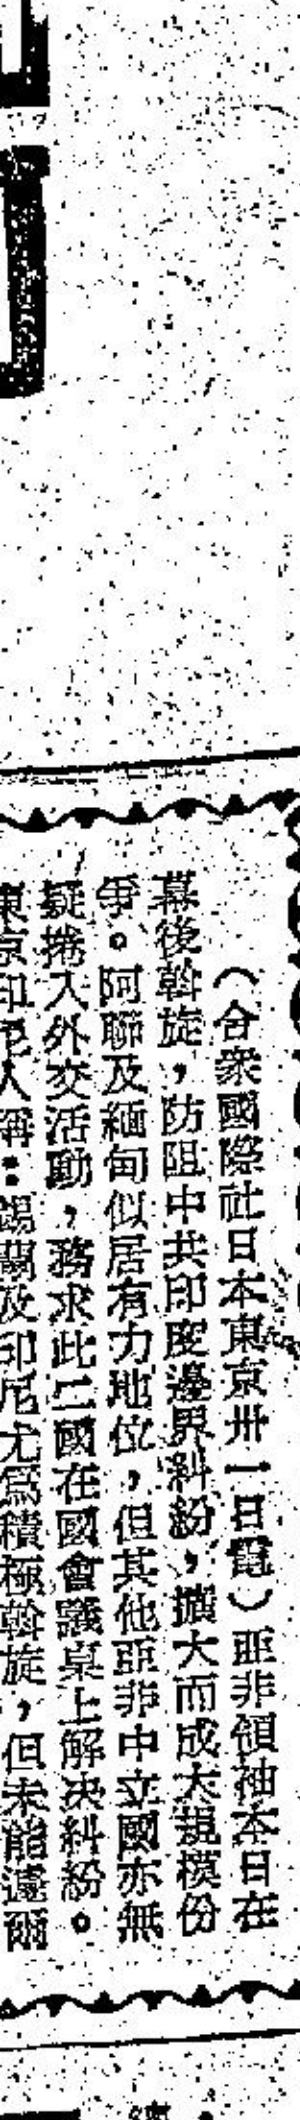 （合衆國際社日本東京卅一日電）亜非領袖本日在
幕後斡旋，防阻中共印度邊界糾紛，擴大而成大規模份
爭。阿聯及緬甸似居有力地位，但其他亜非中立國亦無
疑捲入外交活動，務求此二國在國會議桌上解决糾紛。
東京印尼人稱：錫蘭及印尼尤爲積極斡旋，但未能遽爾